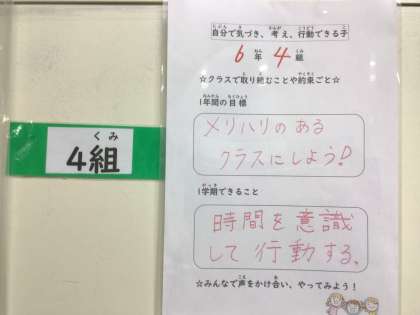 くみ
4組
じぶん きづき かんが こうどう こ
自分で気づき、考え、行動できる子
ねん くみ
6年 4組
☆クラスで取り組むことや約束ごと☆
1年間の目標
メリハリのある
クラスにしよう!
1学期できること
時間を意識
して行動する。
☆みんなで声をかけ合い、やってみよう!